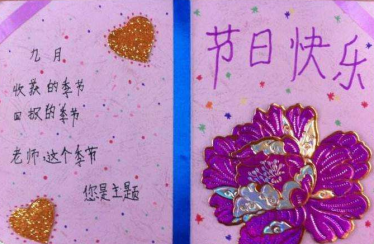 九月
收获的季节
回报的季节
老师 这个季节
您是主题
节日快乐